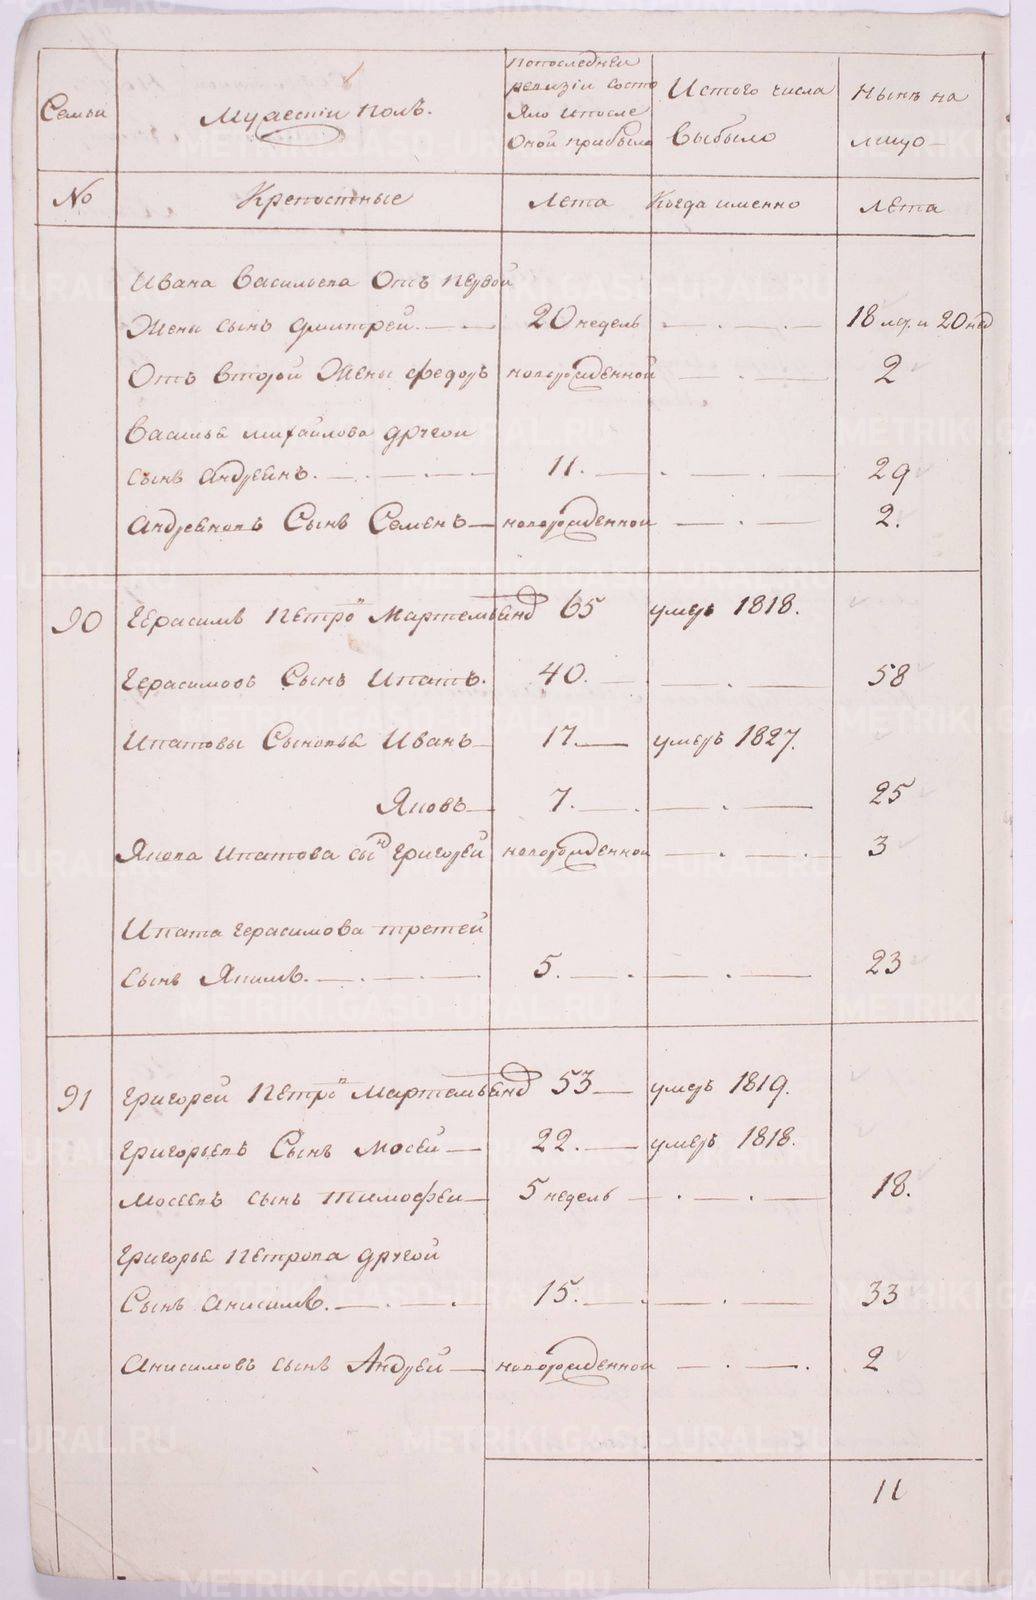 Семьи
Мужескiй полъ.
Попоследней
ревизiи состо
яло ипосле
Оной прибыло
Истого числа
Выбыло
Нынѣ на
лицо
No
Крепостные
Лета
Когда именно
Лета
Ивана Васильева Отъ первой
Жены сынъ Дмитрей. 20 недель 18 ле. и 20 нед
Отъ второй Жены Федоръ новорожденной 2
Василья Михайлова другой
сынъ Андреянъ. 11. 29
Андреяновъ Сынъ Семенъ новорожденной 2.
90 Герасимъ Петро Мартемьянъ 65 умеръ 1818.
Герасимовъ Сынъ Ипатъ. 40. 58
Ипатовы Сыновья Иванъ 17. умеръ 1827.
Яковъ 7. 25
Якова Ипатова сынъ Григорей новорожденной 3
Ипата Герасимова третей
сынъ Якимъ. 5. 23
91 Григорей Петро Мартемьянъ 53 умеръ 1819.
Григорьевъ Сынъ Мосей 22. умеръ 1818.
Мосеевъ сынъ Тимофеи 5 недель 18.
Григорья Петрова другой
Сынъ Анисимъ. 15. 33
Анисимовъ сынъ Андрей новорожденной 2
11
METRIKI.GASO-URAL.RU